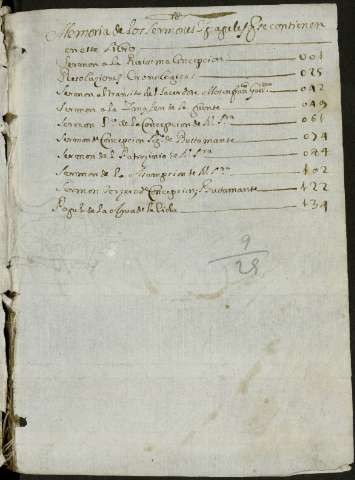 Memoria de los Sermones y Papeles q̃ se contienen
en este Libro
Sermon a la Purissima Concepcion 001
Resoluciones Cronologicas 025
Sermon al transito del Sacerdote 042
Sermon a la Imagen de la fuente 049
Sermon 1º de la Concepcion de Nª Srª 061
Sermon de Concepcion Sgº de Bustamante 074
Sermon de el Patrocinio de Nª Srª 084
Sermon de la Assumpcion de Nª Srª 102
Sermon terzero de Concepcion Bustamante 122
Papel de la Agua de la Vida 134
9
28